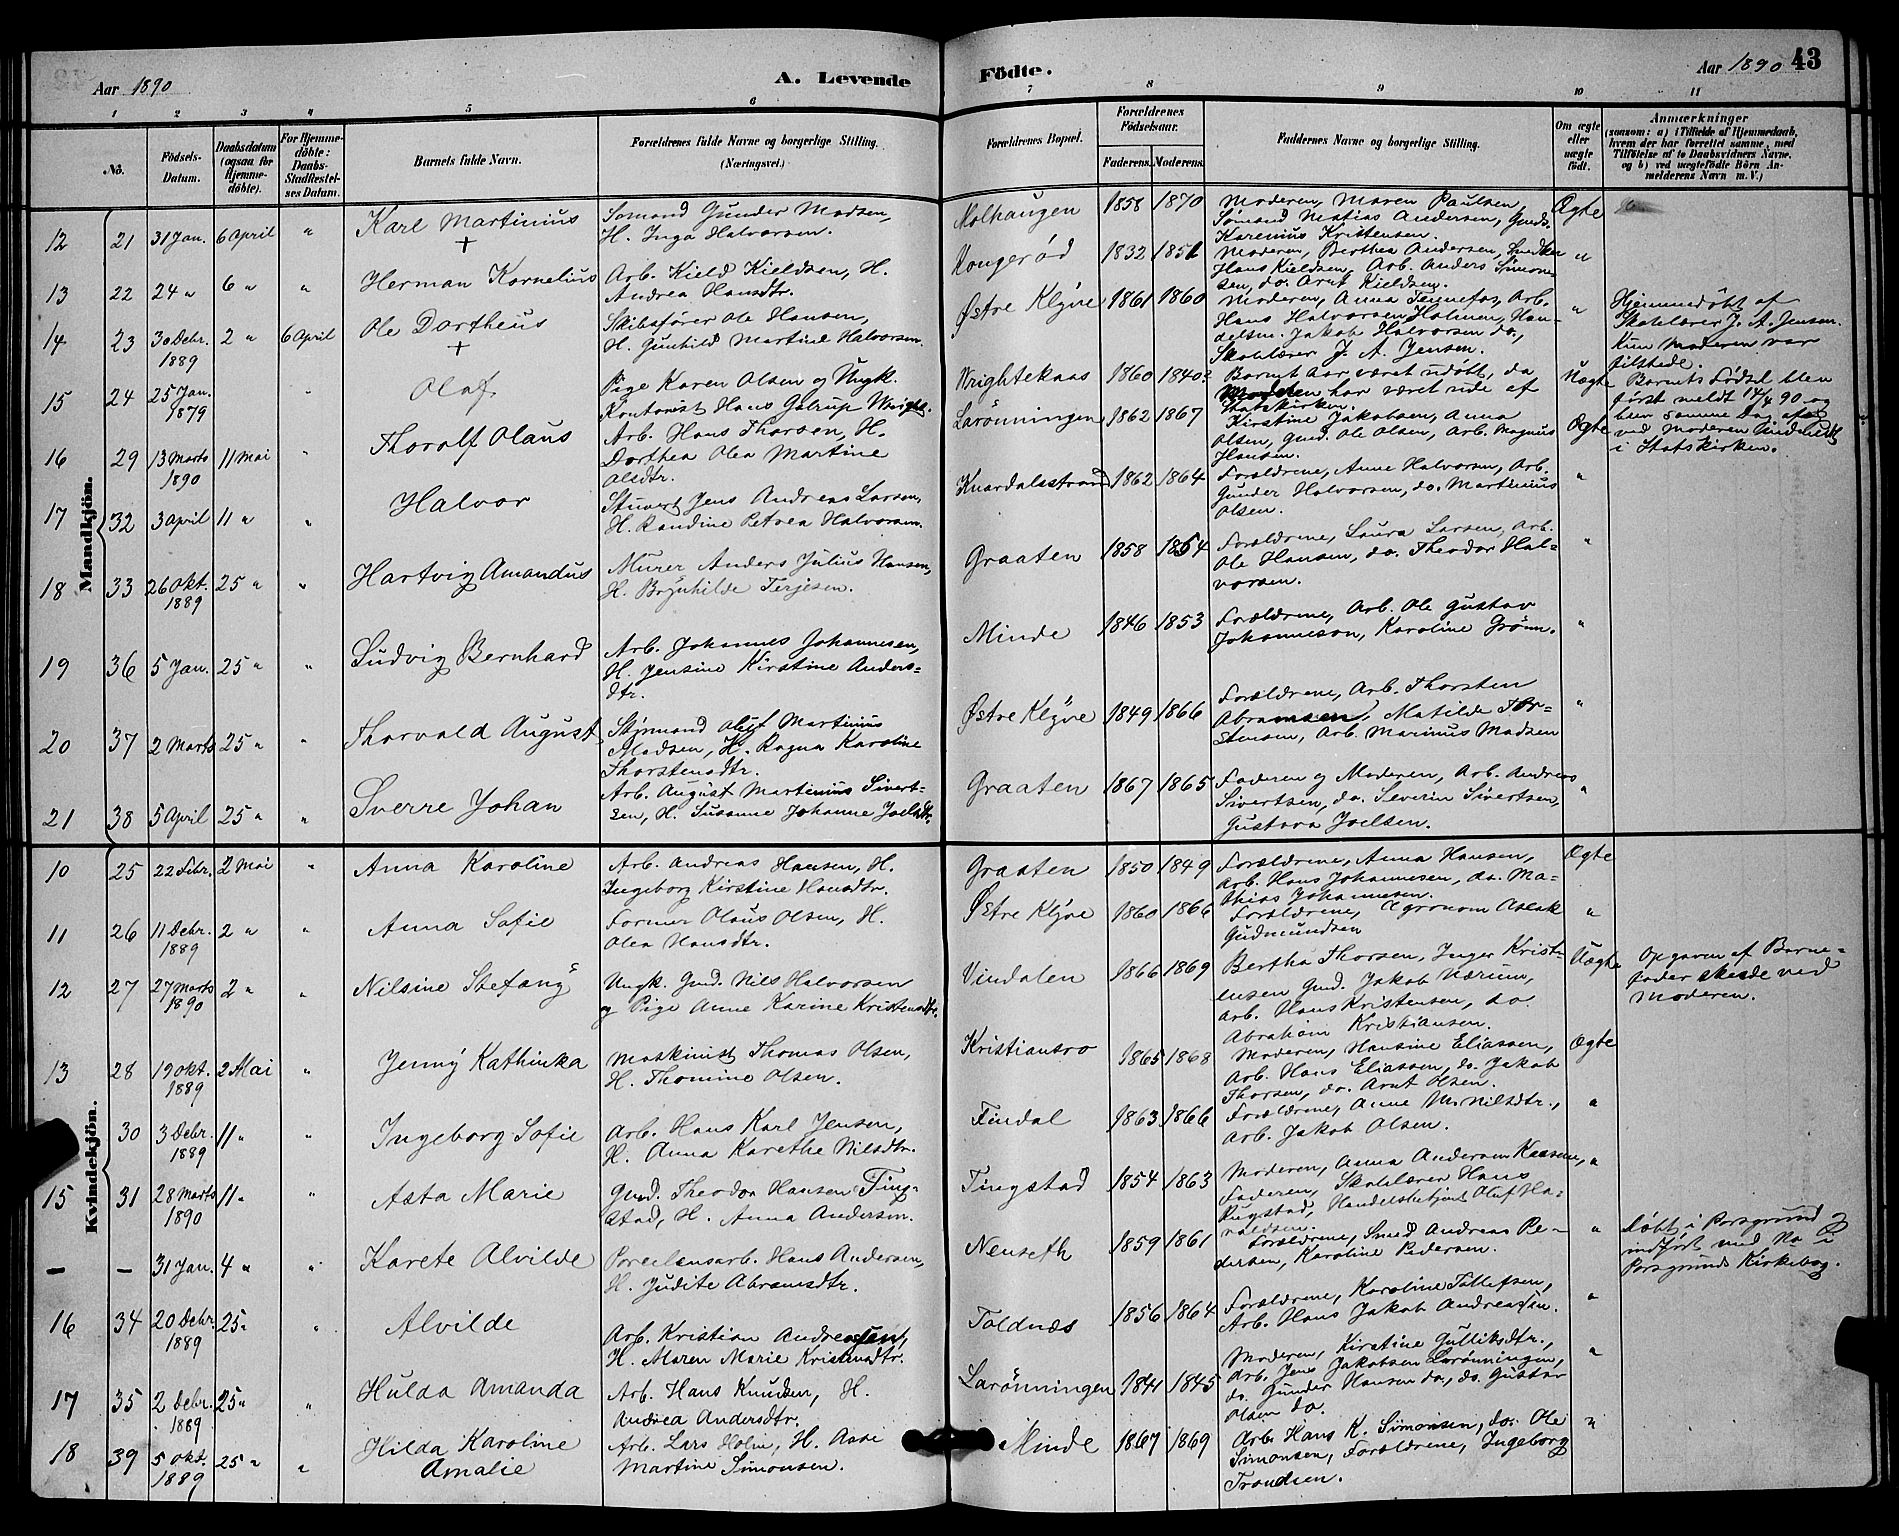 Aar 1890
A. Levende
Födte.
Aar 1890
43
1 2 3 4 5 6 7 8 9 10 11
No.
Födsels-Datum.
Daabsdatum (ogsaa for Hjemme-döbte).
For Hjemme-döbte: Daabs-Stadfestel-ses Datum.
Barnets fulde Navn.
Forældrenes fulde Navne og borgerlige Stilling. (Næringsvei.)
Forældrenes Bopæl.
Forældrenes Födselsaar.
Faderens. Moderens.
Faddernes Navne og borgerlige Stilling.
Om ægte eller uægte födt.
Anmærkninger
(saasom: a) i Tilfælde af Hjemmedaab,
hvem der har forrettet samme, med
Tilföielse af to Daabsvidners Navne,
og b) ved uægtefödte Börn An-
melderens Navn m. V.)
Mandkjön.
12 21 31 Jan. 6 April " Karl Martinius +
Sømand Gunder Madsen,
H. Inga Halvorsen.
Molhaugen 1858 1870
Moderen, Maren Paulsen,
Sømand Matias Andersen, Gmd.
Karenius Kristensen.
Ægte
13 22 24 " 6 " " Herman Kornelius
Arb. Kield Kieldsen, H.
Andrea Hansdtr.
Kongerød 1832 1851
Moderen, Berthea Andersen, Snedker
Hans Kieldsen, Arb. Anders Simon-
sen, do. Arnt Kieldsen.
"
14 23 30 Debr. 1889 2 " 6 April Ole Dortheus +
Skibsfører Ole Hansen,
H. Gunhild Martine Halvorsen.
Østre Klyve 1861 1860
Moderen, Anna Tennefos, Arb.
Hans Halvorsen Holmen, Han-
delsm. Jakob Halvorsen do.,
Skolelærer J. A. Jensen.
"
Hjemmedøbt af
Skolelærer J. A. Jensen.
Kun Moderen var
tilstede.
15 24 25 Jan. 1879 " Olaf
Pige Karen Olsen og Ungk.
Kontorist Hans Gotrup Wright.
Wrightekaas 1860 1840?
Barnet har været udøbt, da
Moderen har været ude af
Statskirken.
Uægte
Barnets Fødsel blev
først meldt 14/4 90 og
blev samme Dag
ved Moderen indmeldt
i Statskirken.
16 29 13 Marts 1890 11 Mai " Thoralf Olaus
Arb. Hans Thorsen, H.
Dorthea Olea Martine
Olsdtr.
Larønningen 1862 1867
Kirstine Jakobsen, Anna
Olsen, Gmd. Ole Olsen, Arb. Magnus
Hansen.
Ægte
17 32 3 April 11 " " Halvor
Stuert Jens Andreas Larsen,
H. Randine Petrea Halvorsen.
Knardalsstrand 1862 1864
Forældrene, Anne Halvorsen, Arb.
Gunder Halvorsen, do. Martinius
Olsen.
"
18 33 26 Okt. 1889 25 " " Hartvig Amandus
Murer Anders Julius Hansen,
H. Brynhilde Terjesen.
Graaten 1858 1854
Forældrene, Laura Larsen, Arb.
Ole Hansen, do. Theodor Hal-
vorsen.
"
19 36 5 Jan. 25 " " Ludvig Bernhard
Arb. Johannes Johannesen,
H. Jensine Kirstine Anders-
dtr.
Minde 1846 1853
Forældrene, Arb. Ole Gustav
Johannesen, Karoline Grönn.
"
20 37 2 Marts 25 " " Thorvald August
Styrmand Oluf Martinius
Madsen, H. Ragna Karoline
Thorstensdtr.
Østre Klyve 1849 1866
Forældrene, Arb. Thorsten
Abramsen, Matilde Thor-
stensen, Arb. Marinus Madsen
"
21 38 5 April 25 " " Sverre Johan
Arb. August Martinius Sivert-
sen, H. Susanne Johanne Joelsdtr.
Graaten 1867 1865
Faderen og Moderen, Arb. Andreas
Sivertsen, do. Severin Sivertsen,
Gustava Joelsen.
"
Kvindekjön.
10 25 22 Febr. 2 Mai " Anna Karoline
Arb. Andreas Hansen, H.
Ingeborg Kirstine Hansdtr.
Graaten 1850 1849
Forældrene, Anna Hansen,
Arb. Hans Johannesen, do. Ma-
thias Johannesen.
Ægte
11 26 11 Debr. 1889 2 " " Anna Sofie
Former Olaus Olsen, H.
Olea Hansdtr.
Østre Klyve 1860 1866
Forældrene, Agronom Aslak
Gudmundsen
"
12 27 27 Marts 1890 2 " " Nilsine Stefany
Ungk. Gmd. Nils Halvorsen
og Pige Anne Karine Kristensdtr.
Vindalen 1866 1869
Bertha Thorsen, Inger Krist-
ensen Gmd. Jakob Værum,
Arb. Hans Kristensen, do.
Abraham Kristiansen.
Uægte
Opgaven af Barne-
fader skede ved
Moderen.
13 28 19 Okt. 1889 2 Mai " Jenny Kathinka
Maskinist Thomas Olsen,
H. Thomine Olsen.
Kristiantro 1865 1868
Moderen, Hansine Eliassen,
Arb. Hans Eliassen, do. Jakob
Thorsen, do. Arnt Olsen.
Ægte
30 3 Debr. 1889 11 " " Ingeborg Sofie
Arb. Hans Karl Jensen,
H. Anna Karethe Nilsdtr.
Findal 1863 1866
Forældrene, Anne M. Nilsdtr.,
Arb. Jakob Olsen.
"
15 31 28 Marts 1890 11 " " Asta Marie
Gmd. Theodor Hansen Ting-
stad, H. Anna Andersen.
Tingstad 1854 1863
Moderen, Anna Andersen Kaasene,
Faderen, Skolelærer Hans
Rugstad, Handelsbetjent Oluf Ha-
raldsen.
"
— — 31 Jan. 4 " " Karete Alvilde
Porcelansarb. Hans Andersen,
H. Judite Abramsdtr.
Nenseth 1859 1861
Forældrene, Smed Andreas Pe-
dersen, Karoline Pedersen.
"
Døbt i Porsgrund og
indført med No i
Porsgrunds Kirkebog.
16 34 20 Debr. 1889 25 " " Alvilde
Arb. Kristian Andreassen,
H. Maren Marie Kristensdtr.
Toldnæs 1856 1864
Forældrene, Karoline Tollefsen,
Arb. Hans Jakob Andreassen.
"
17 35 2 Debr. 1889 25 " " Hulda Amanda
Arb. Hans Knudsen, H.
Andrea Andersdtr.
Larønningen 1841 1845
Moderen, Kirstine Gulliksdtr.,
Arb. Jens Jakobsen Larønningen,
do. Gunder Hansen do., do. Gustav
Olsen do.
"
18 39 5 Okt. 1889 25 " " Hilda Karoline
Amalie
Arb. Lars Holm, H. Aase
Martine Simonsen.
Minde 1867 1869
Arb. Hans K. Simonsen, do. Ole
Simonsen, Forældrene, Ingeborg
Trondsen.
"